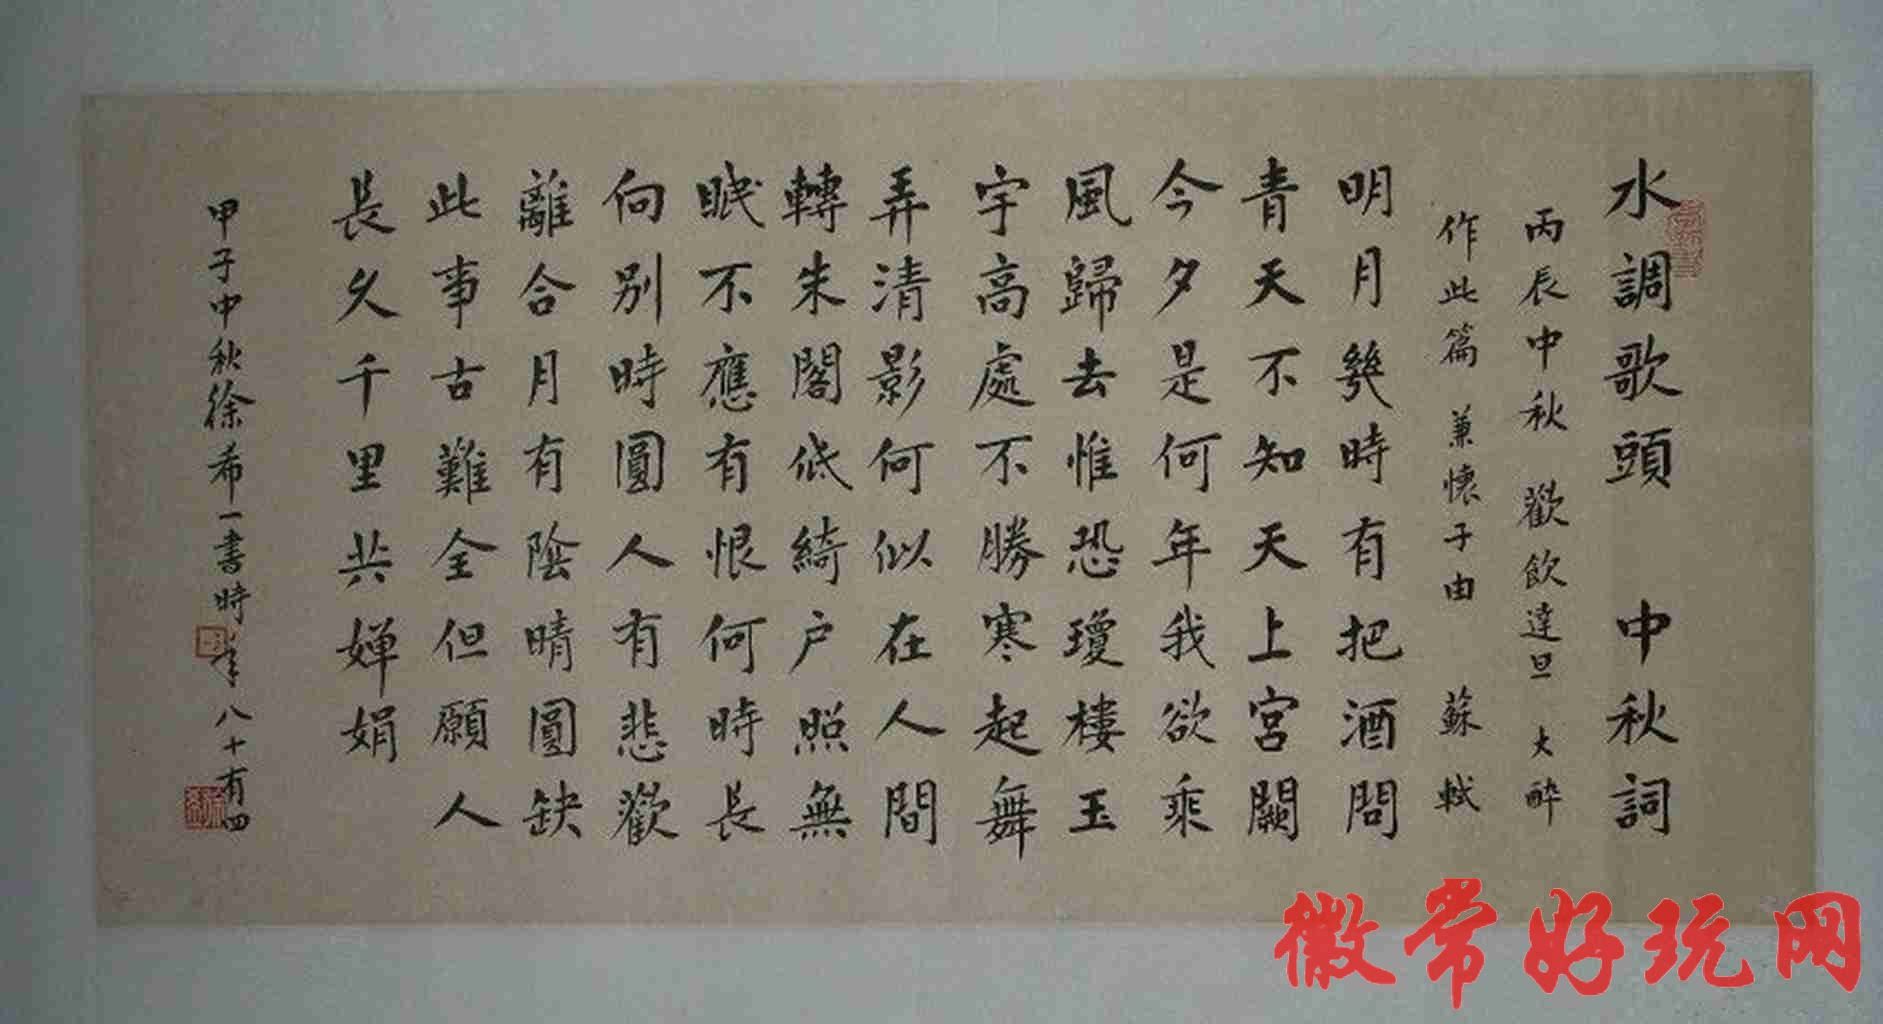 水調歌頭 中秋詞
丙辰中秋 歡飲達旦 大醉
作此篇 兼懷子由 蘇軾
明月幾時有把酒問
青天不知天上宮闕
今夕是何年我欲乘
風歸去惟恐瓊樓玉
宇高處不勝寒起舞
弄清影何似在人間
轉朱閣低綺户照無
眠不應有恨何時長
向別時圓人有悲歡
離合月有陰晴圓缺
此事古難全但願人
長久千里共嬋娟
甲子中秋徐希一書時年八十有四
徽常好玩网